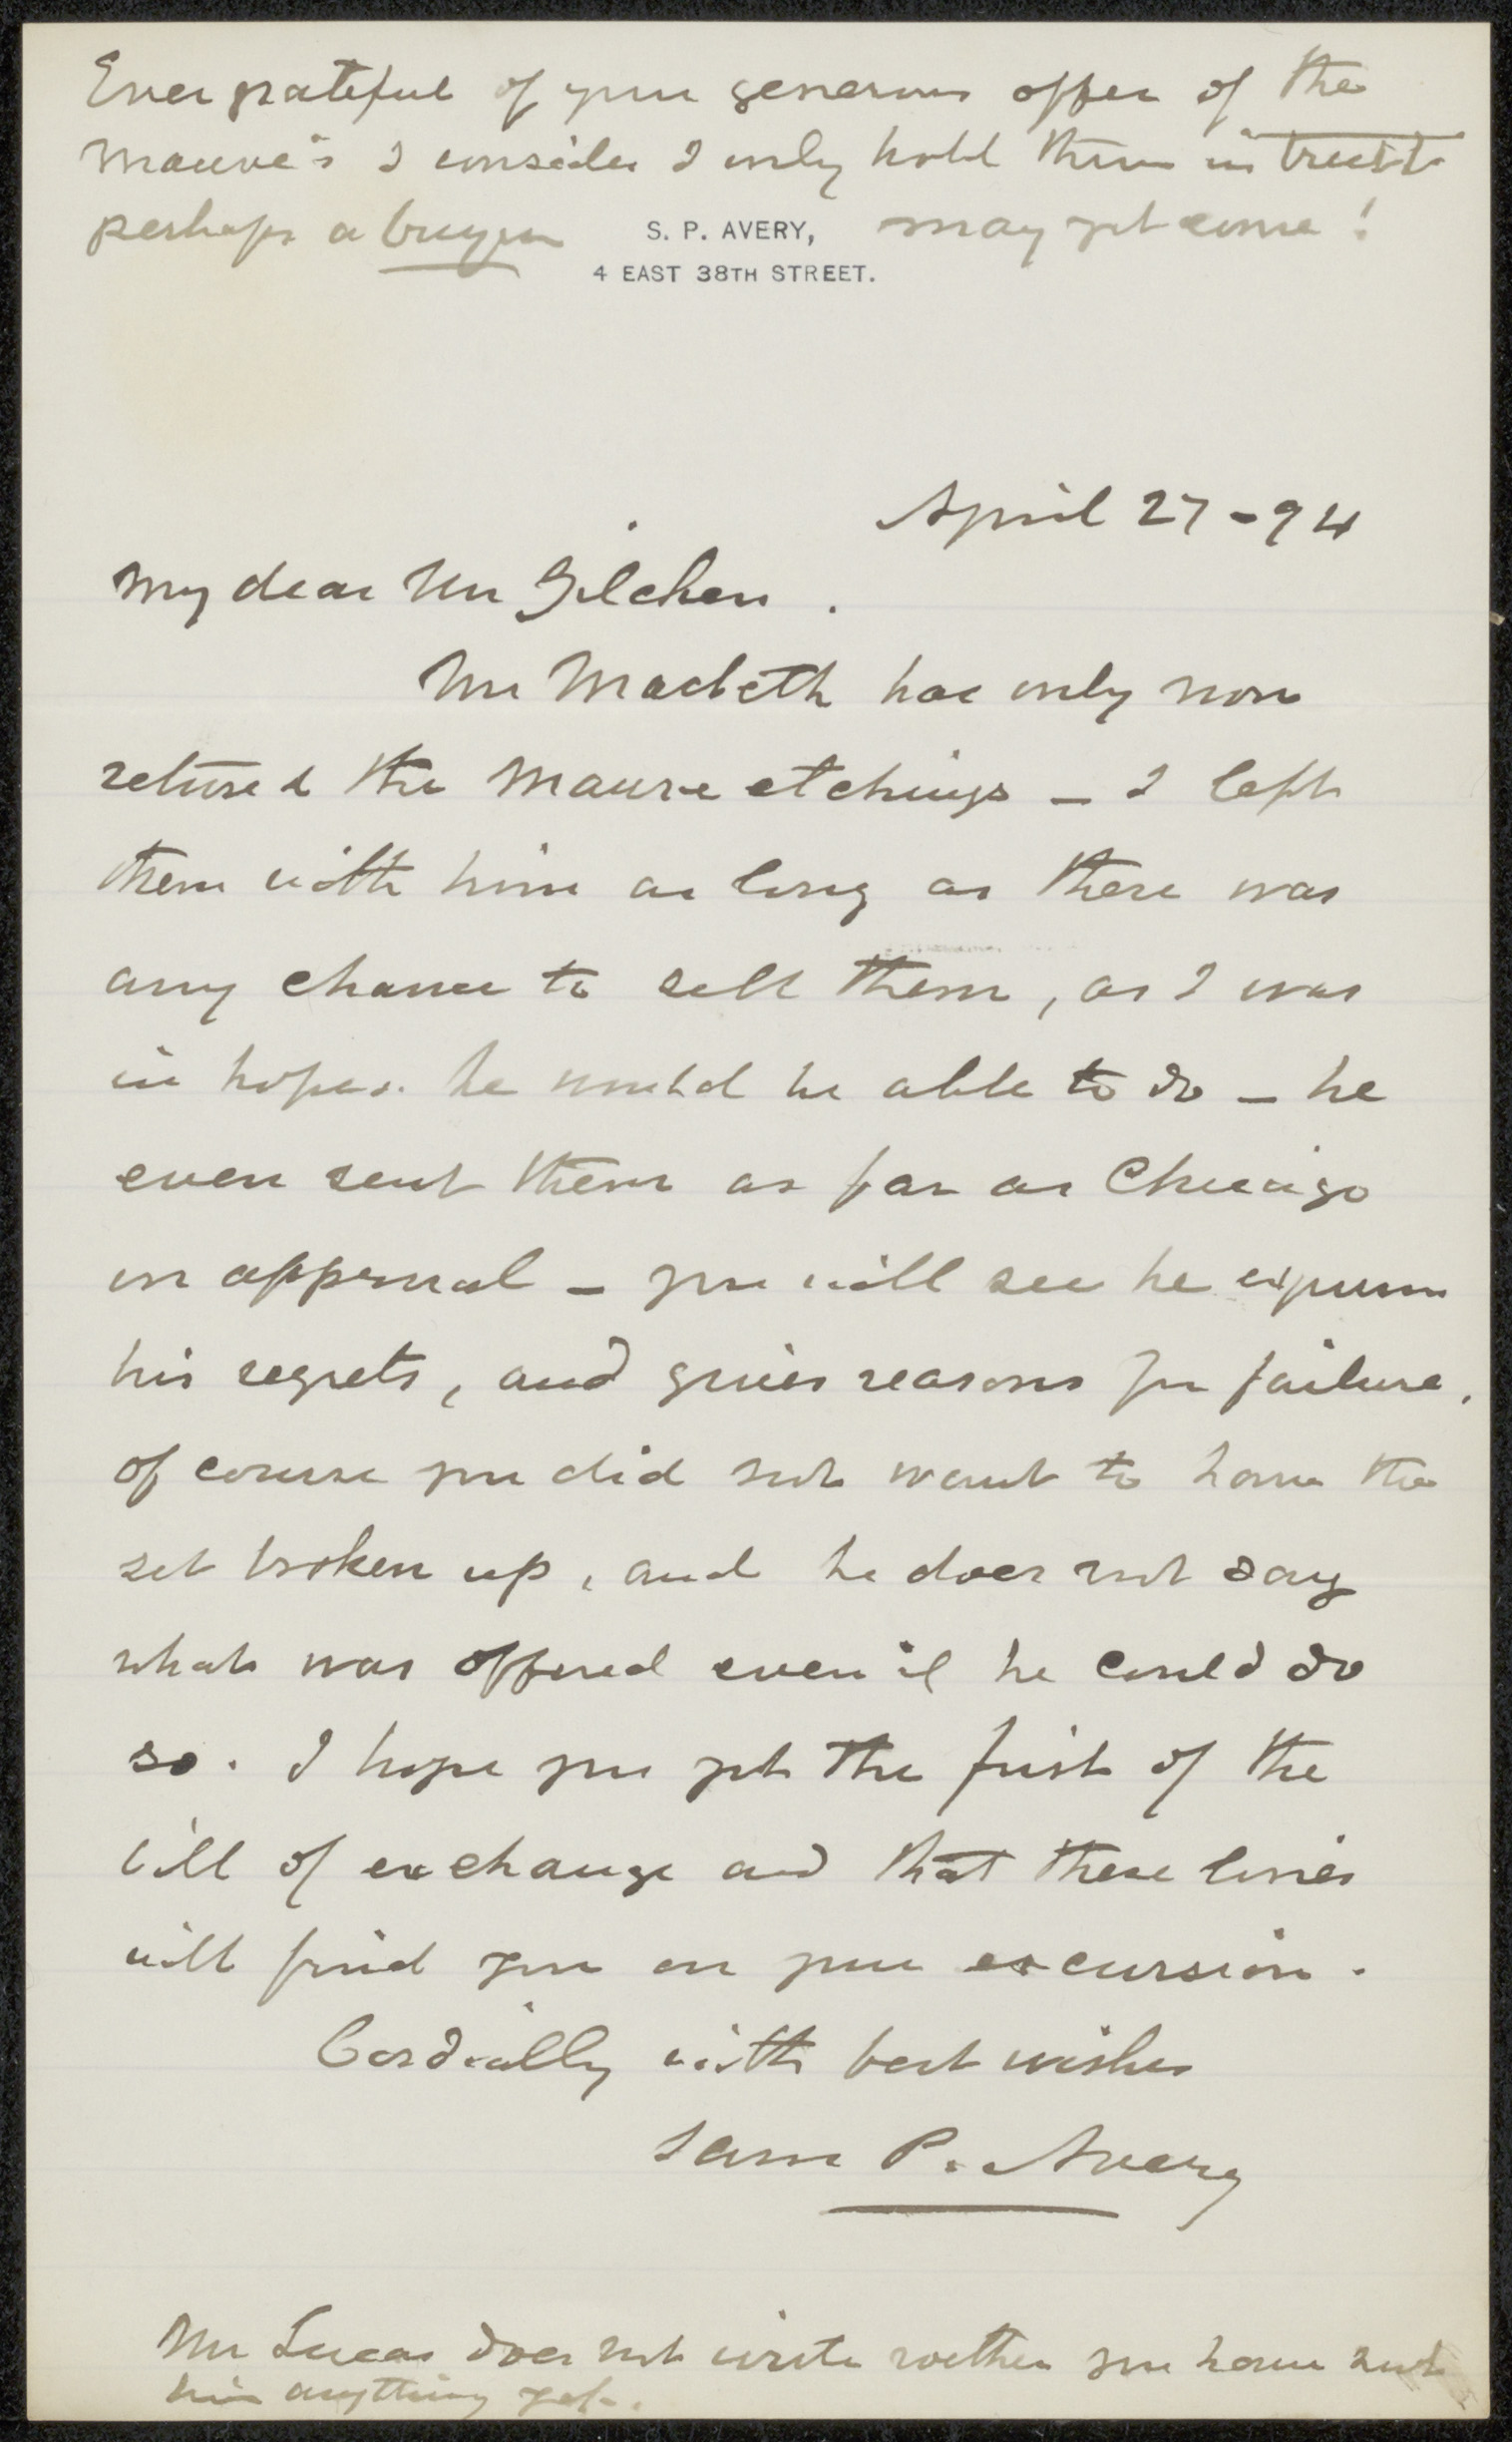 Ever grateful of your generous offer of the
Mauve's I consider I only hold them in trust
perhaps a buyer may yet come!
S. P. AVERY,
4 EAST 38TH STREET.
April 27-94
My dear Mr Zilcken.
Mr Macbeth has only now
returned the Mauve etchings – I left
them with him as long as there was
any chance to sell them, as I was
in hopes he would be able to do – he
even sent them as far as Chicago
on approval – you will see he express
his regrets, and gives reasons for failure.
of course you did not want to have the
set broken up, and he does not say
what was offered even if he could do
so. I hope you got the first of the
bill of exchange and that these lines
will find you on your excursion.
Cordially with best wishes
Sam P. Avery
Mr Lucas does not write wether you have sent
him anything yet.